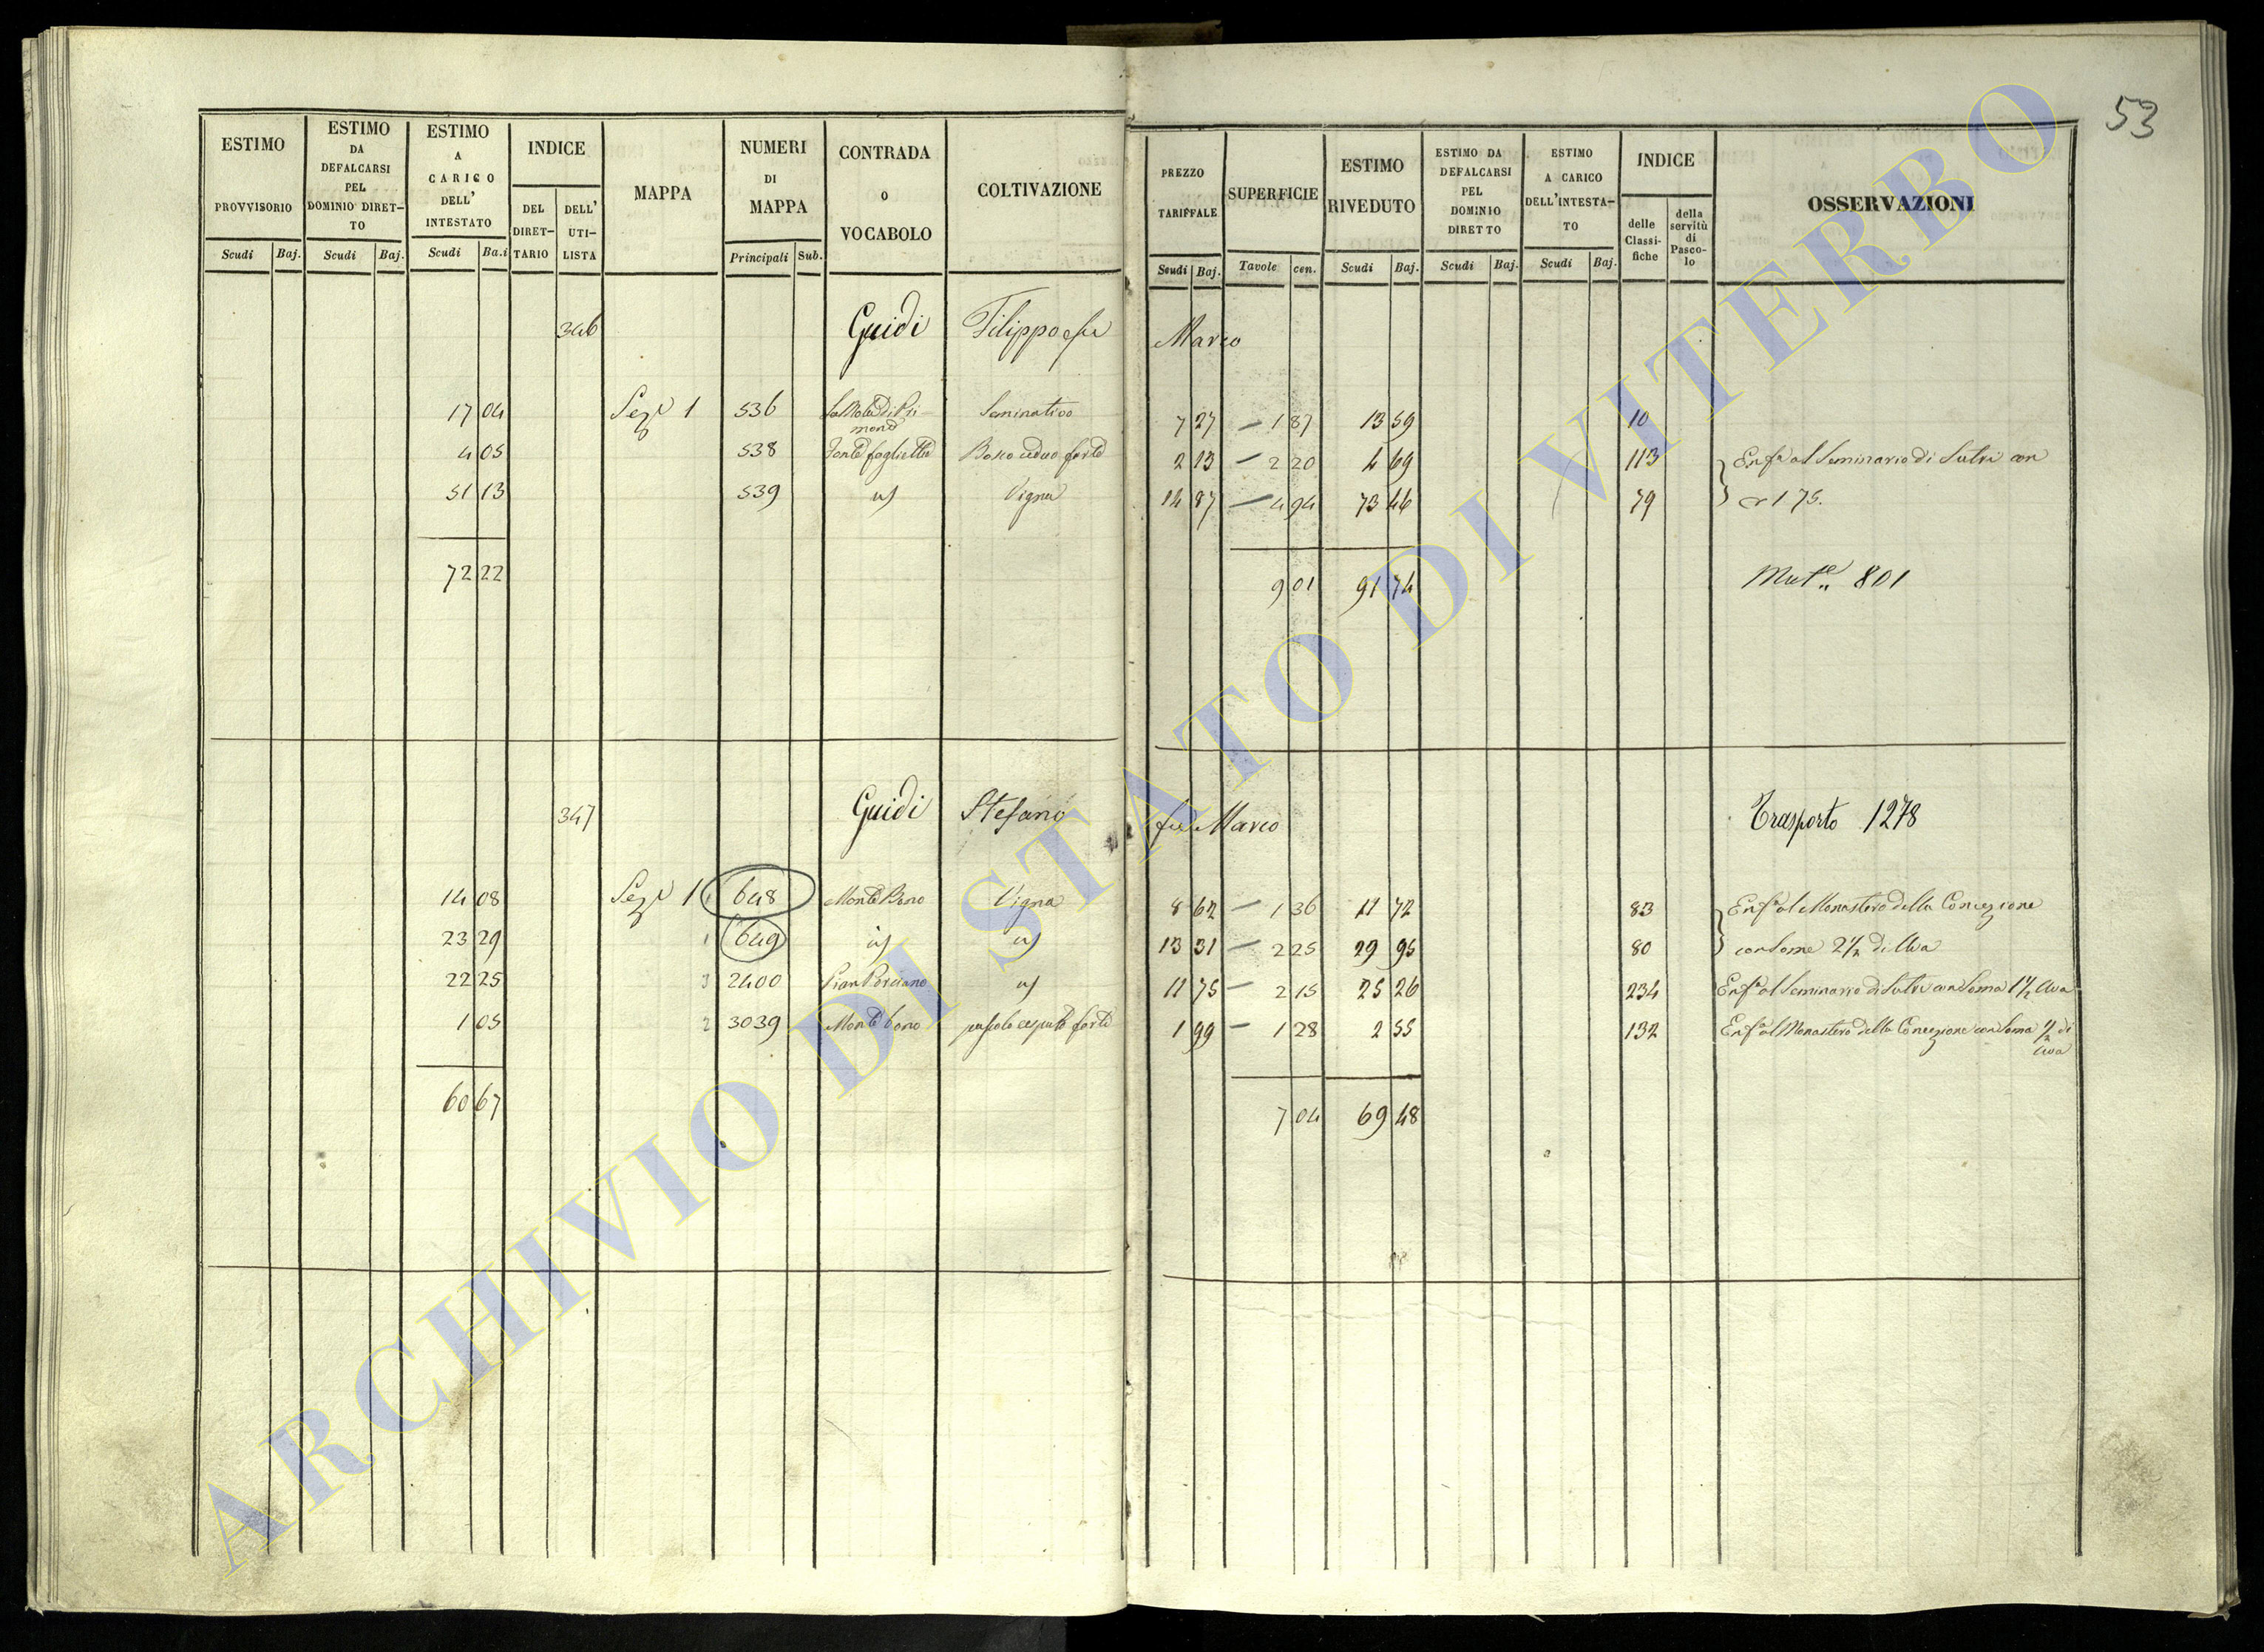 53
ESTIMO PROVVISORIO Scudi Baj.
ESTIMO DA DEFALCARSI PEL DOMINIO DIRET-TO Scudi Baj.
ESTIMO A CARICO DELL' INTESTATO Scudi Ba.i
INDICE DEL DIRET-TARIO DELL' UTI-LISTA
MAPPA
NUMERI DI MAPPA Principali Sub.
CONTRADA O VOCABOLO
COLTIVAZIONE
PREZZO TARIFFALE Scudi Baj.
SUPERFICIE Tavole cen.
ESTIMO RIVEDUTO Scudi Baj.
ESTIMO DA DEFALCARSI PEL DOMINIO DIRETTO Scudi Baj.
ESTIMO A CARICO DELL'INTESTA-TO Scudi Baj.
INDICE delle Classi-fiche della servitù di Pasco-lo
OSSERVAZIONI
346 Guidi Filippo Marco
17 04 Sez. 1 536 Seminativo 7 27 1 87 13 59 10
4 05 538 Bosco ceduo forte 2 13 2 20 4 69 113 Enfa al Seminario di Sutri con
51 13 539 Vigna 14 87 4 94 73 46 79 1 75.
72 22 9 01 91 74 Mut.e 801
347 Guidi Stefano fu Marco Trasporto 1278
14 08 Sez. 1 648 Monte Bono Vigna 8 62 1 36 11 72 83 Enfa al Monastero della Concezione
23 29 1 649 13 31 2 25 29 95 80 con Some 2 1/2 di Uva
22 25 3 2400 Pian Porciano 11 75 2 15 25 26 234 Enfa al Seminario di Sutri con Soma 1 1/2 Uva
1 05 2 3039 Monte bono pascolo cesputo forte 1 99 1 28 2 55 132 Enfa al Monastero della Concezione con Soma 1/2 di
Uva
60 67 7 04 69 48
ARCHIVIO DI STATO DI VITERBO